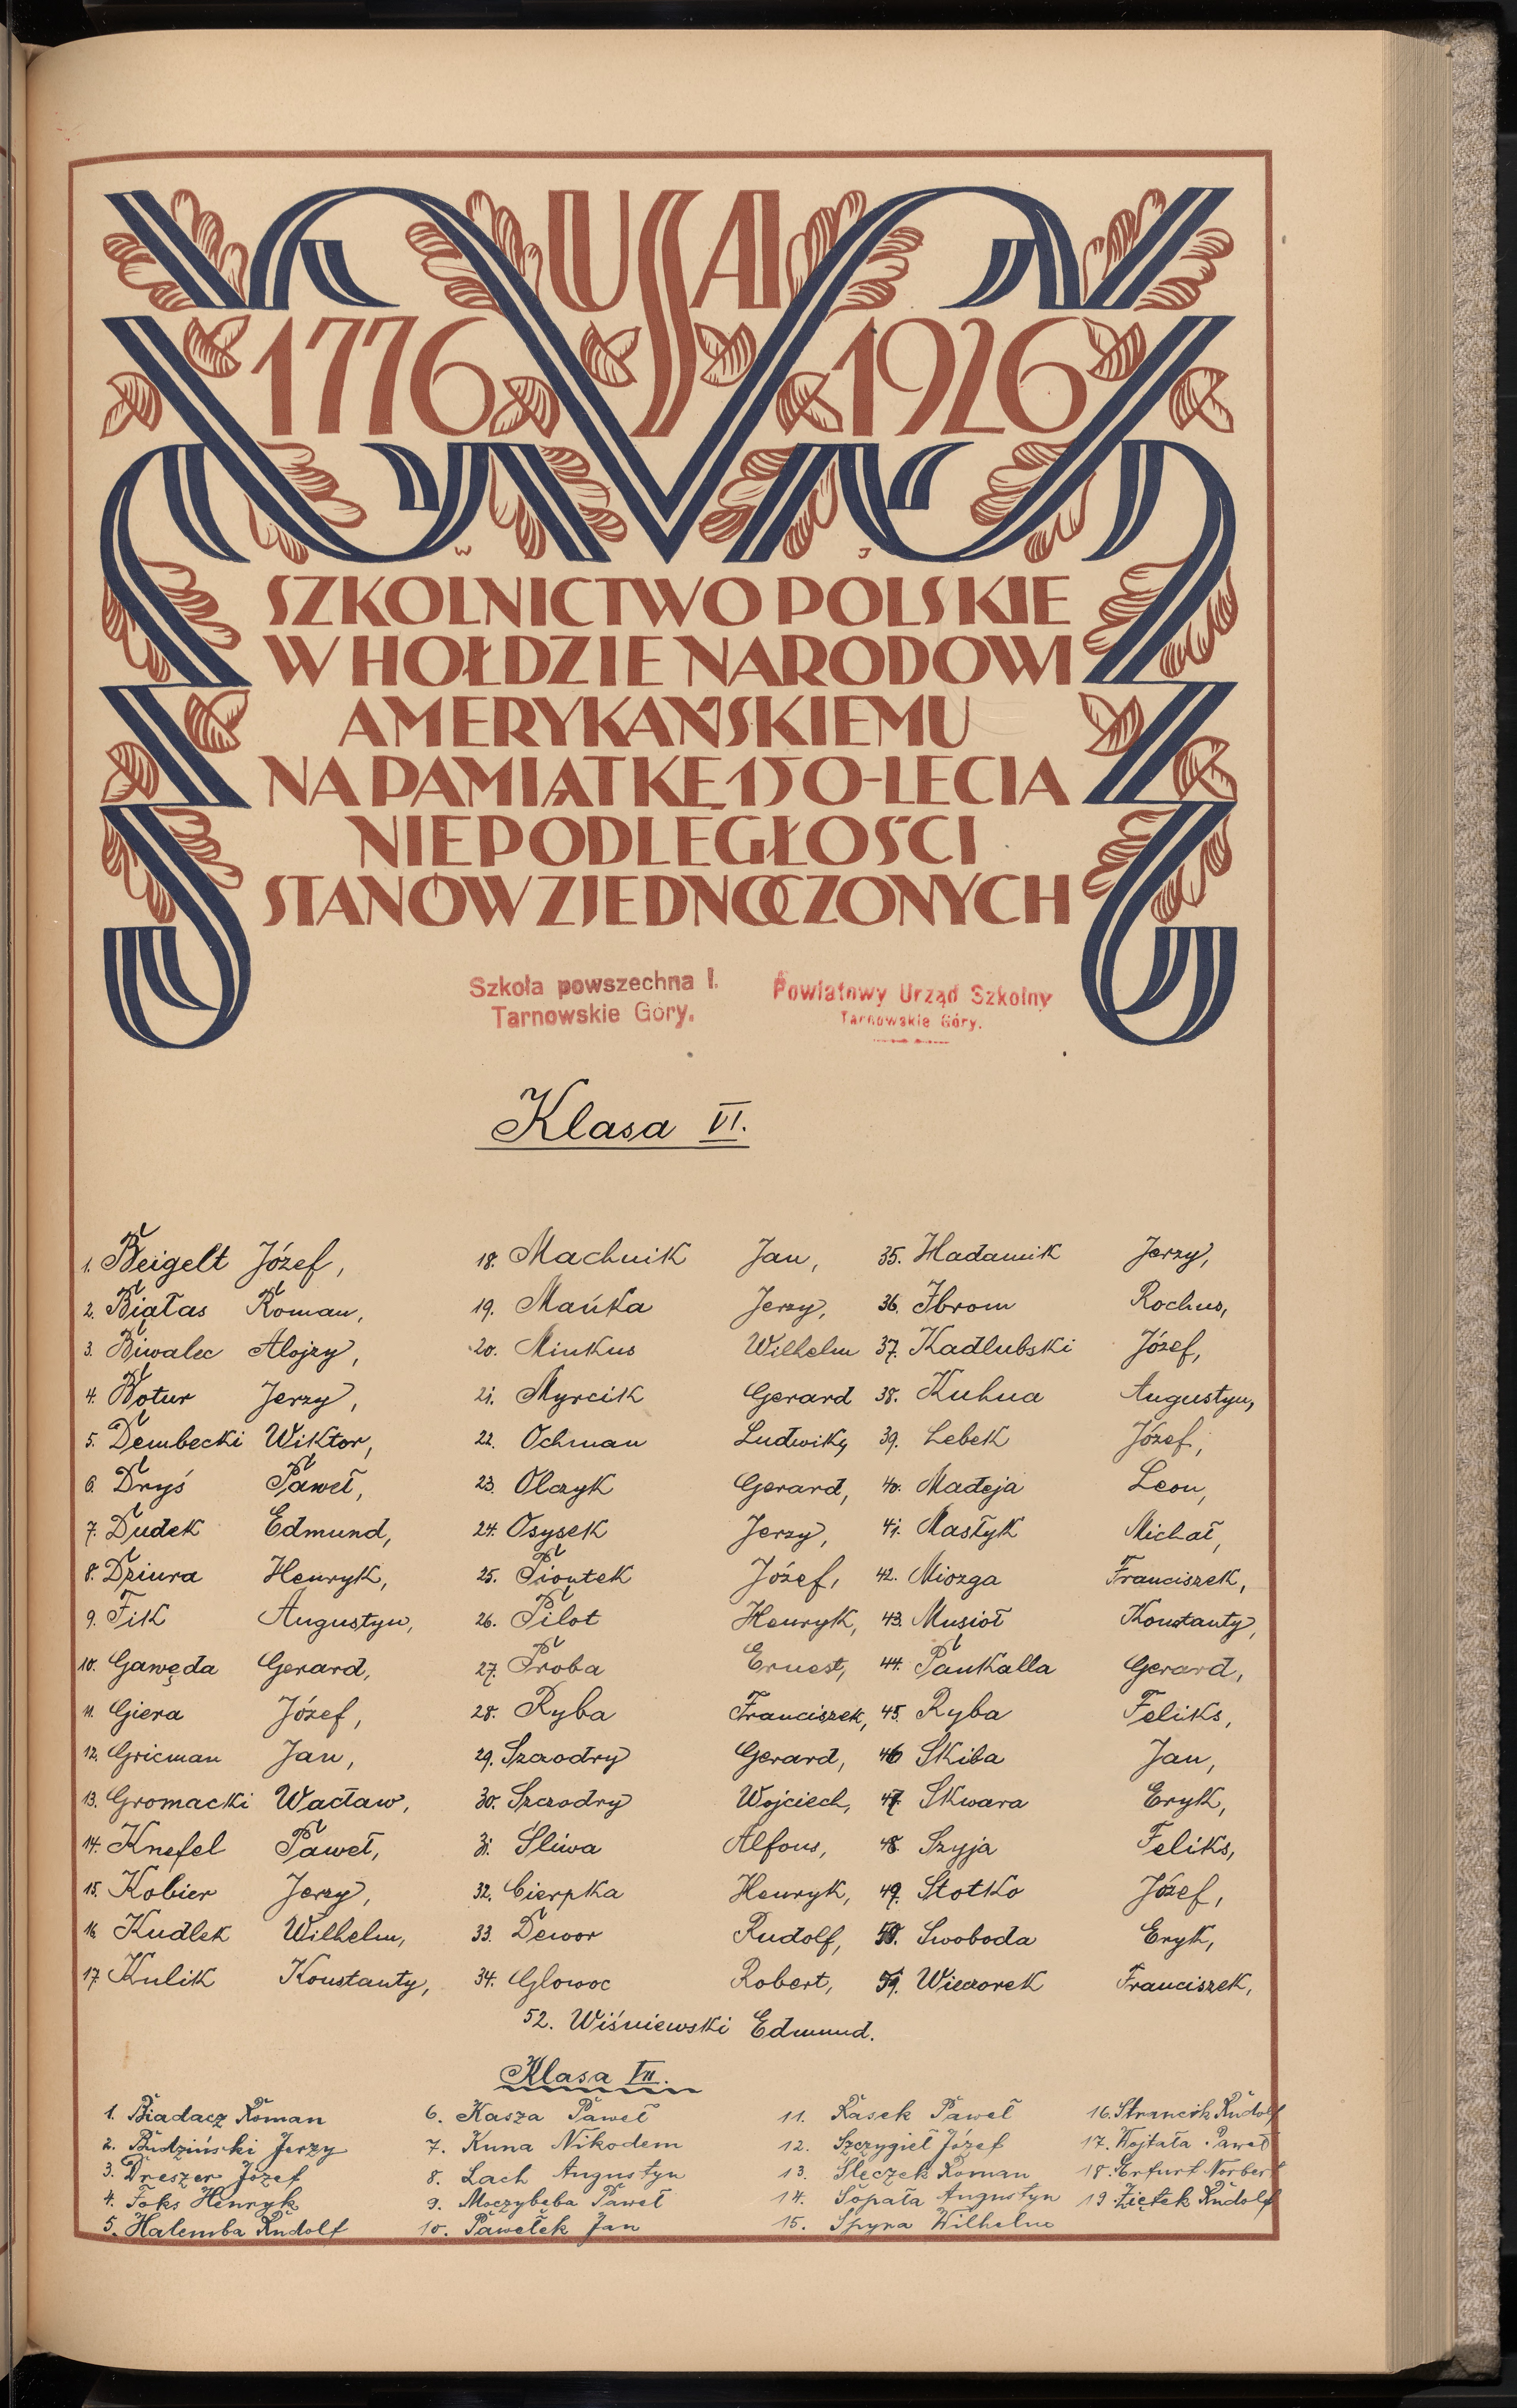 USA
1776 1926
W J
SZKOLNICTWO POLSKIE
W HOŁDZIE NARODOWI
AMERYKAŃSKIEMU
NA PAMIĄTKĘ 150-LECIA
NIEPODLEGŁOŚCI
STANÓW ZJEDNOCZONYCH
Szkoła powszechna I.
Tarnowskie Góry.
Powiatowy Urząd Szkolny
Tarnowskie Góry.
Klasa VI.
1. Beigelt Józef,
2. Białas Roman,
3. Biwalec Alojzy,
4. Botur Jerzy,
5. Dembecki Wiktor,
6. Dryś Paweł,
7. Dudek Edmund,
8. Dziura Henryk,
9. Fik Augustyn,
10. Gawęda Gerard,
11. Giera Józef,
12. Gricman Jan,
13. Gromacki Wacław,
14. Knefel Paweł,
15. Kobier Jerzy,
16. Kudlek Wilhelm,
17. Kulik Konstanty,
18. Machnik Jan,
19. Mańka Jerzy,
20. Minkus Wilhelm
21. Myrcik Gerard
22. Ochman Ludwik,
23. Olczyk Gerard,
24. Osysek Jerzy,
25. Piontek Józef,
26. Pilot Henryk,
27. Proba Ernest,
28. Ryba Franciszek,
29. Szczodry Gerard,
30. Szczodry Wojciech,
31. Śliwa Alfons,
32. Cierpka Henryk,
33. Dewor Rudolf,
34. Glowoc Robert,
35. Hadamik Jerzy,
36. Ibrom Rochus,
37. Kadlubski Józef,
38. Kuhna Augustyn,
39. Lebek Józef,
40. Madeja Leon,
41. Mastyk Michał,
42. Miozga Franciszek,
43. Musioł Konstanty,
44. Pankalla Gerard,
45. Ryba Feliks,
46 Skiba Jan,
47. Skwara Eryk,
48. Szyja Feliks,
49. Stotko Józef,
50. Swoboda Eryk,
51. Wieczorek Franciszek,
52. Wiśniewski Edmund.
Klasa VII.
1. Biadacz Roman
2. Budziński Jerzy
3. Dreszer Józef
4. Foks Henryk
5. Halemba Rudolf
6. Kasza Paweł
7. Kuna Nikodem
8. Lach Augustyn
9. Moczybęba Paweł
10. Pawełek Jan
11. Rasek Paweł
12. Szczygieł Józef
13. Ślęczek Roman
14. Sopała Augustyn
15. Spyra Wilhelm
16. Strancik Rudolf
17. Wojtała Paweł
18. Erfurt Norbert
19 Ziętek Rudolf